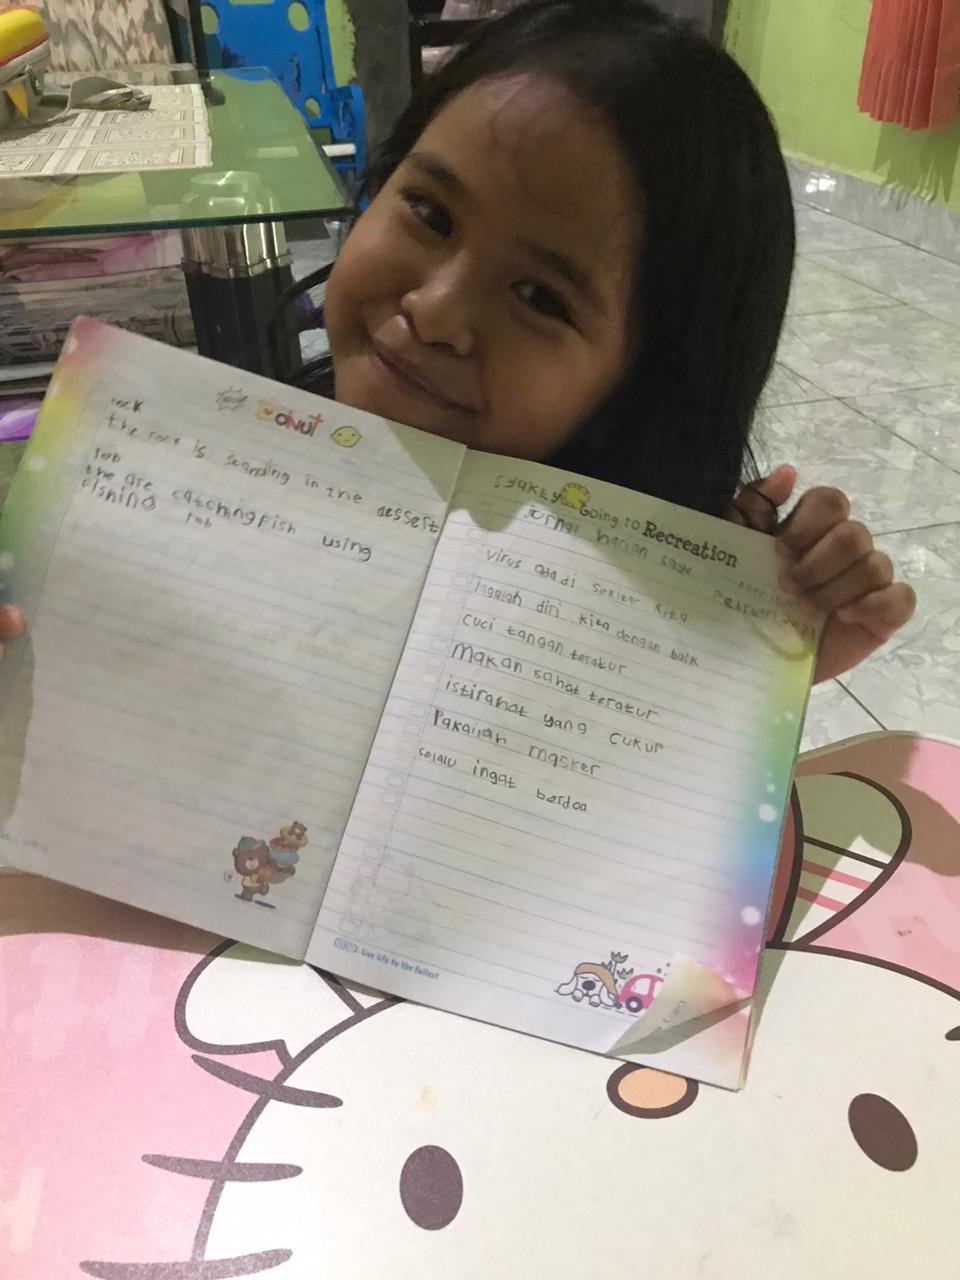 rock
the rock is standing in the dessert
rob
the are catching fish using
fishing rob
Donut
Going to Recreation
jurnal harian saya
Februari
virus ada di sekitar kita
Jagalah diri kita dengan baik
cuci tangan teratur
Makan sahat teratur
istirahat yang cukup
Pakailah masker
selalu ingat berdoa
Live life to the fullest